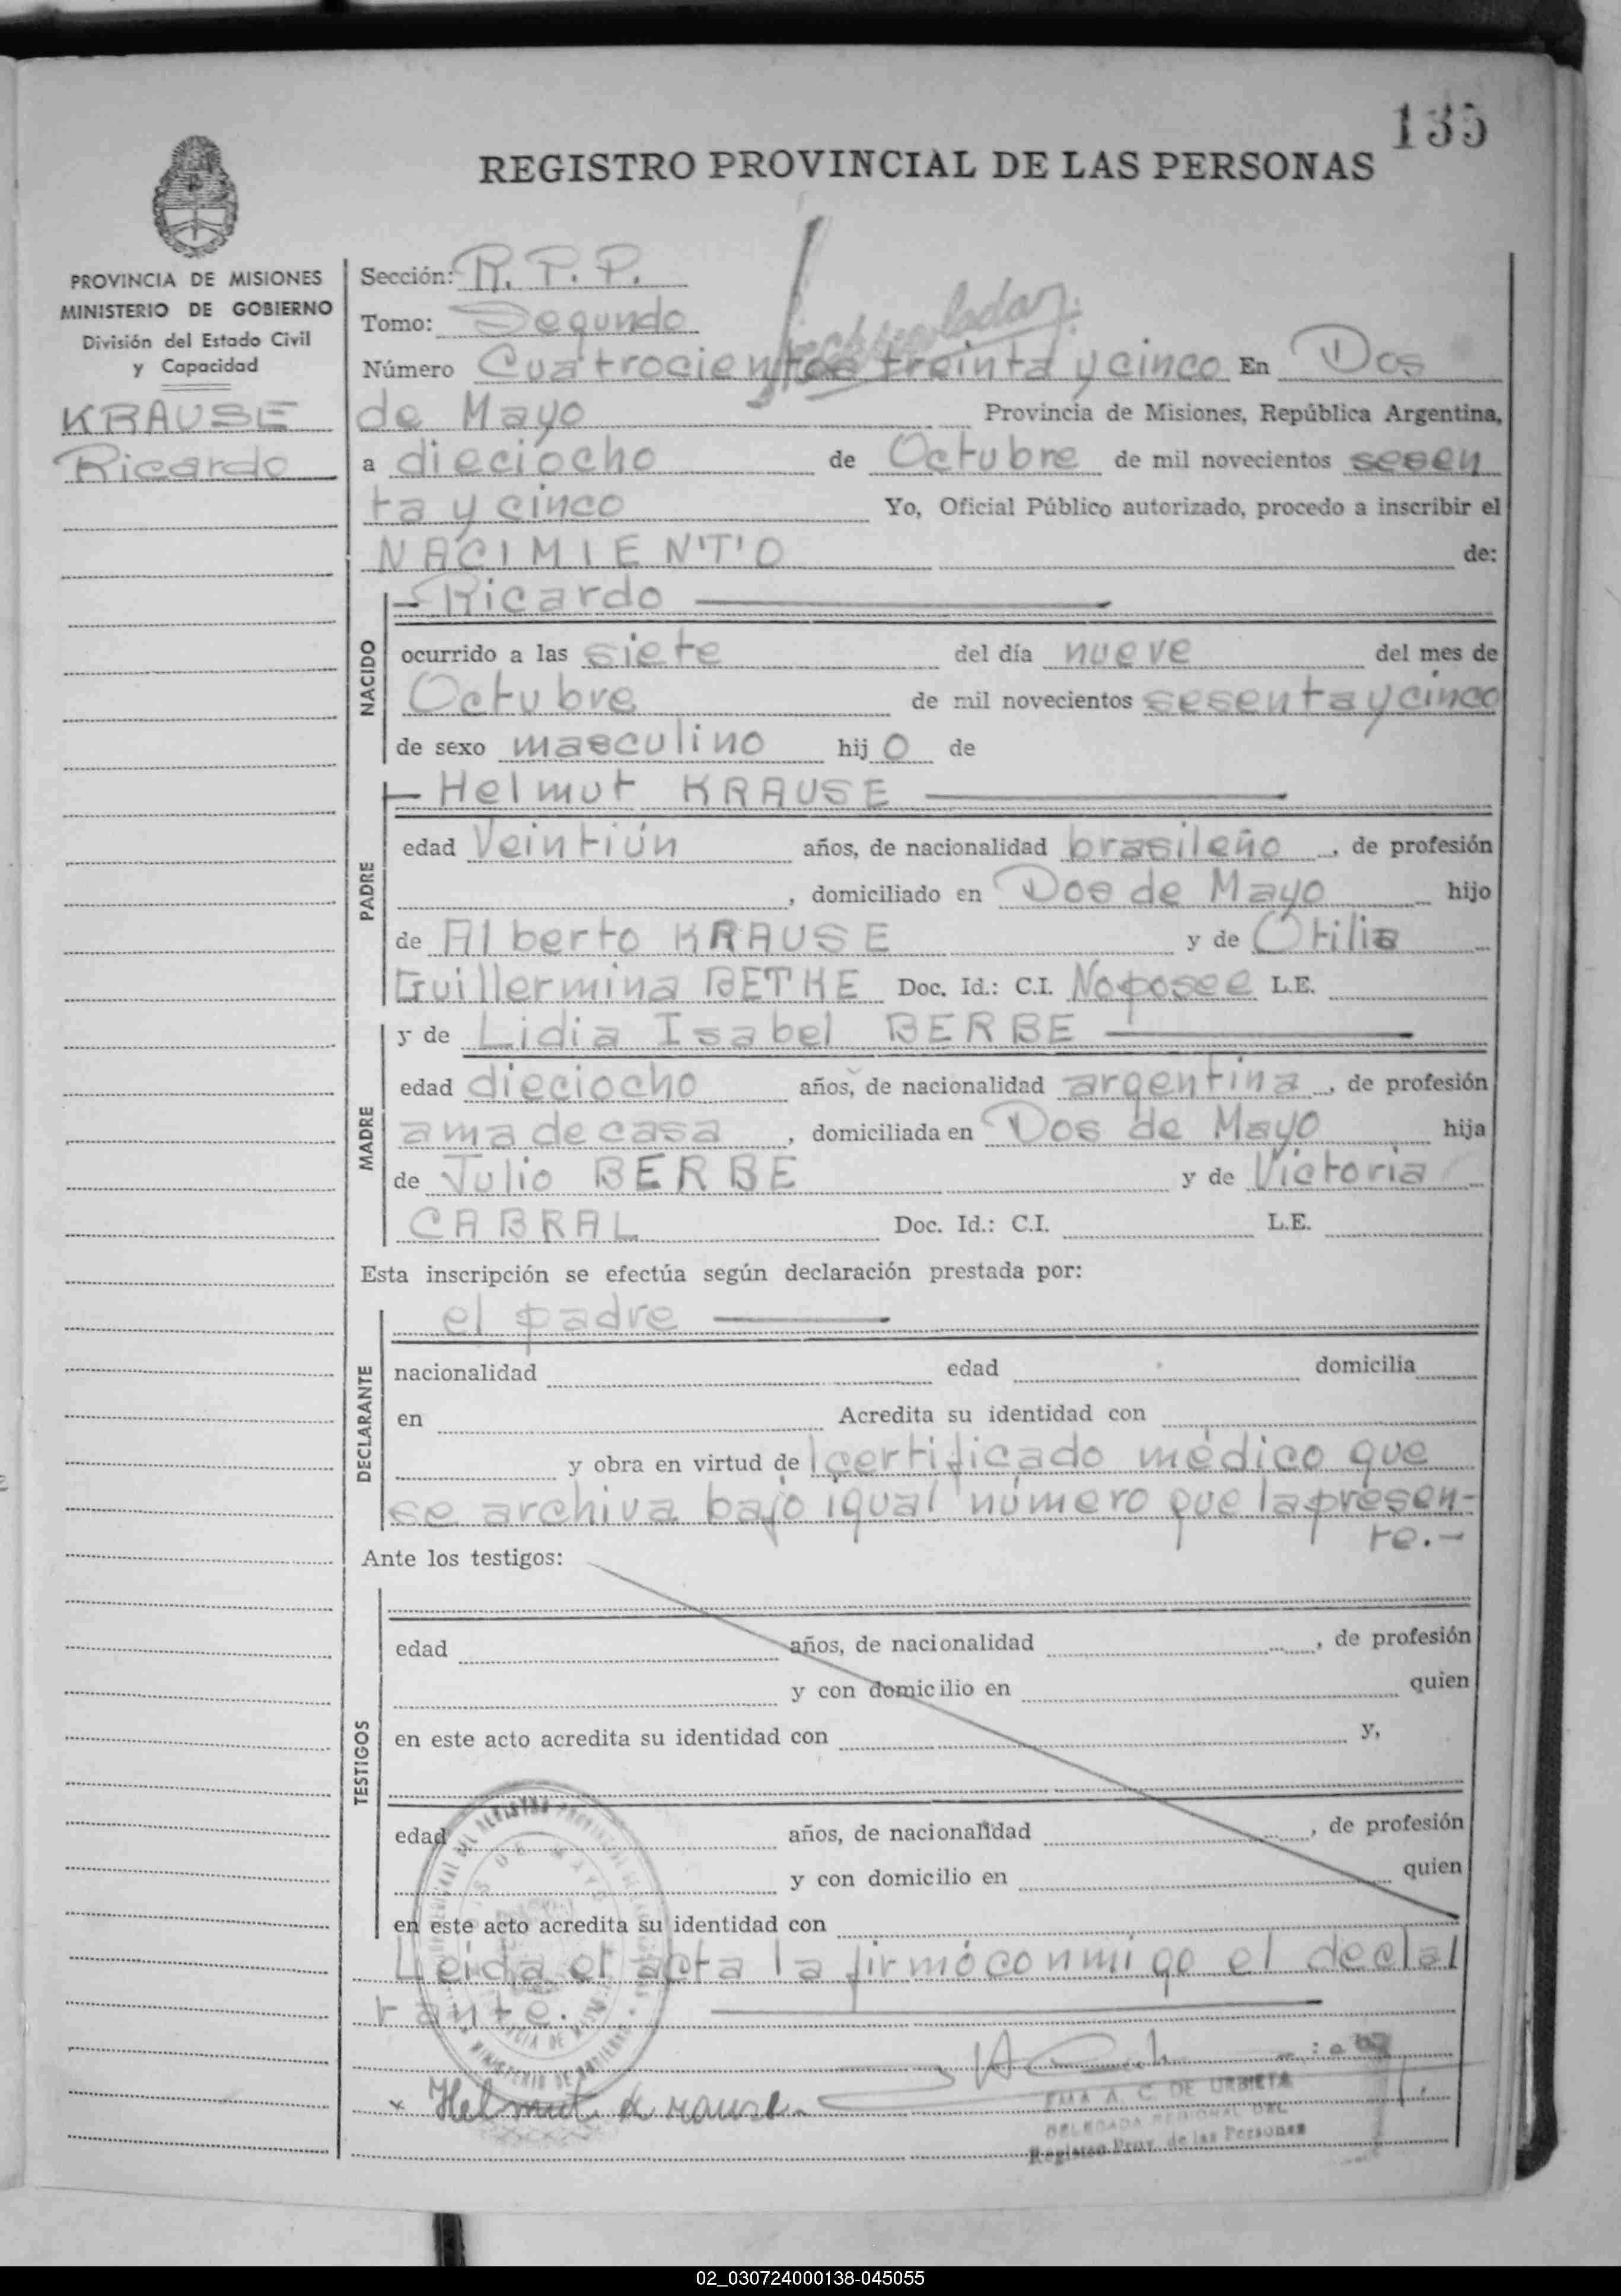 135
REGISTRO PROVINCIAL DE LAS PERSONAS
PROVINCIA DE MISIONES
MINISTERIO DE GOBIERNO
División del Estado Civil
y Capacidad
KRAUSE
Ricardo
Sección: R. P. P.
Tomo: Segundo
Número Cuatrocientos treinta y cinco En Dos
de Mayo Provincia de Misiones, República Argentina,
a dieciocho de Octubre de mil novecientos sesen
ta y cinco Yo, Oficial Público autorizado, procedo a inscribir el
NACIMIENTO de:
NACIDO
- Ricardo
ocurrido a las siete del día nueve del mes de
Octubre de mil novecientos sesenta y cinco
de sexo masculino hijo de
PADRE
- Helmut KRAUSE
edad Veintiún años, de nacionalidad brasileño, de profesión
, domiciliado en Dos de Mayo hijo
de Alberto KRAUSE y de Otilia
Guillermina BETKE Doc. Id.: C.I. No posee L.E.
MADRE
y de Lidia Isabel BERBE
edad dieciocho años, de nacionalidad argentina, de profesión
ama de casa, domiciliada en Dos de Mayo hija
de Julio BERBE y de Victoria
CABRAL Doc. Id.: C.I. L.E.
Esta inscripción se efectúa según declaración prestada por:
DECLARANTE
el padre
nacionalidad edad domicilia
en Acredita su identidad con
y obra en virtud de certificado médico que
se archiva bajo igual número que la presen-
te.-
Ante los testigos:
TESTIGOS
edad años, de nacionalidad , de profesión
y con domicilio en quien
en este acto acredita su identidad con y,
edad años, de nacionalidad , de profesión
y con domicilio en quien
en este acto acredita su identidad con
Leida el acta la firmó conmigo el decla
rante.
x Helmut Krause
EMA A. C. DE URBIETA
DELEGADA REGIONAL DEL
Registro Prov. de las Personas
02_030724000138-045055